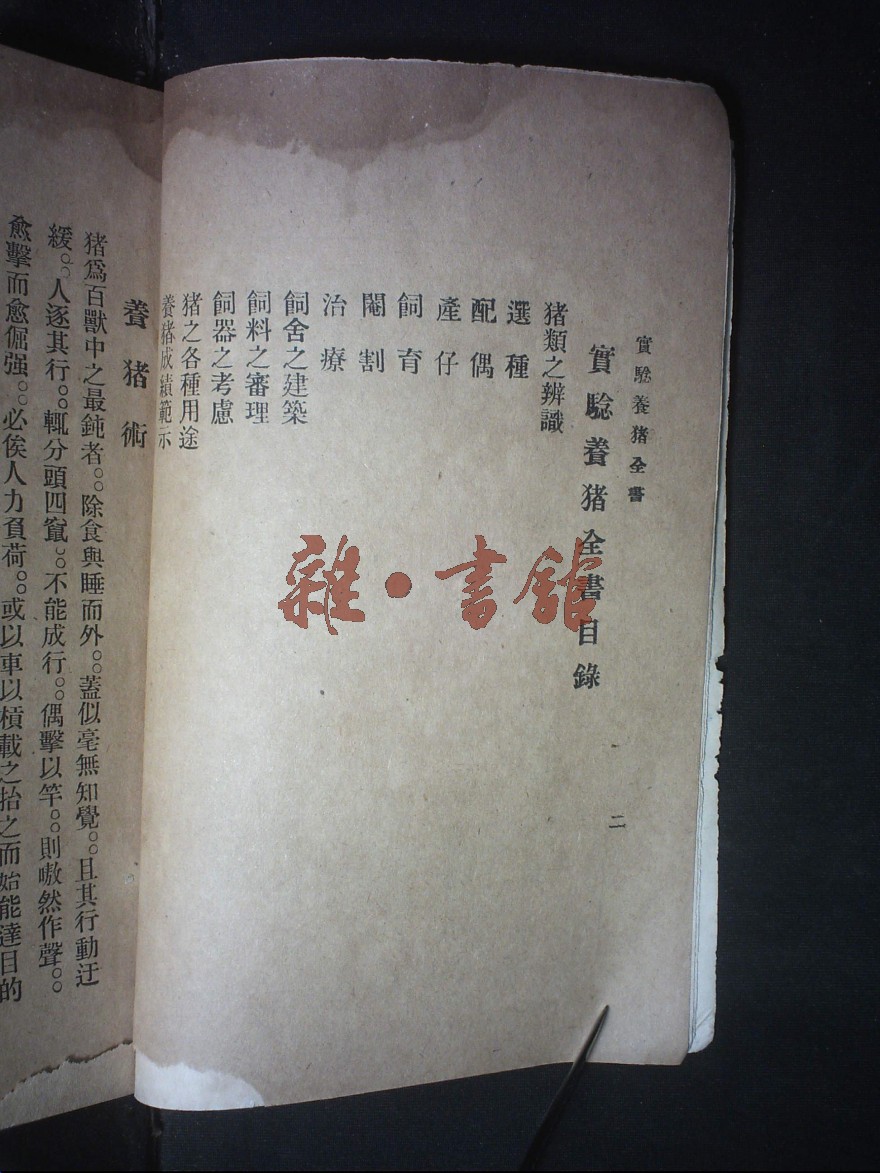 實驗養猪全書
實驗養猪全書目錄
猪類之辨識
選種
配偶
產仔
飼育
閹割
治療
飼舍之建築
飼料之審理
飼器之考慮
猪之各種用途
養猪成績範示
二
雜·書館
養猪術
猪爲百獸中之最鈍者。。除食與睡而外。。蓋似毫無知覺。。且其行動迂
緩。。人逐其行。。輒分頭四竄。。不能成行。。偶擊以竿。。則嗷然作聲。。
愈擊而愈倔强。。必俟人力負荷。。或以車以槓載之抬之而始能達目的